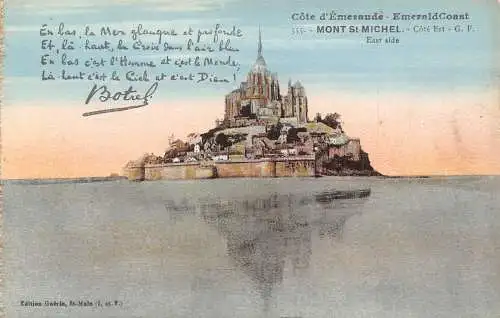 En bas, la Mer glauque et profonde
Et, là haut, la Croix dans l'air bleu
En bas c'est l'Homme et c'est le Monde,
Là haut c'est le Ciel et c'est Dieu !
Botrel
Côte d'Émeraude - Emerald Coast
355. - MONT St MICHEL. - Côté Est - G. F.
East side
Edition Guérin, St-Malo (I. et V.)